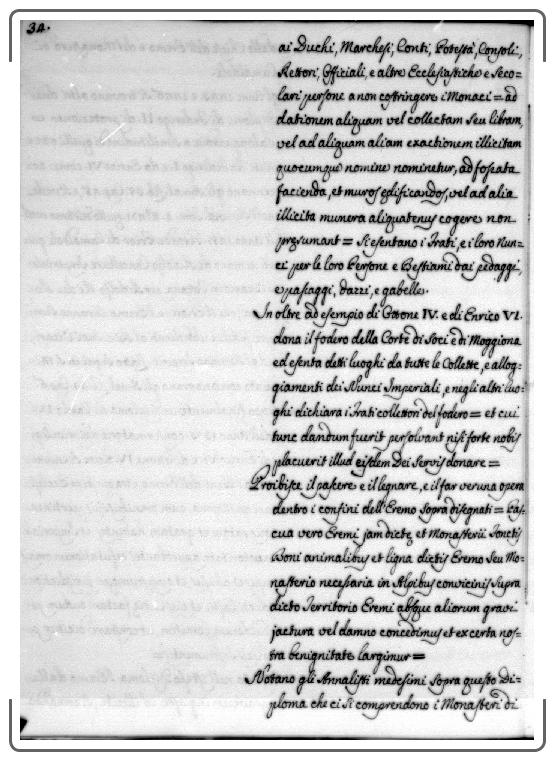 34.
ai Duchi, Marchesi, Conti, Potestà, Consoli,
Rettori, Officiali, e altre Ecclesiastiche e Seco=
lari persone a non costringere i Monaci = ad
dationem aliquam vel collectam seu libram,
vel ad aliquam aliam exactionem illicitam
quocumque nomine nominetur, ad fossata
facienda, et muros edificandos, vel ad alia
illicita munera aliquatenus cogere non
presumant = Si esentano i Frati, e i loro Nun=
ci per le loro Persone e Bestiami dai pedaggi,
e passaggi, dazzi, e gabelle.
In oltre ad esempio di Ottone IV. e di Enrico VI.
dona il fodero della Corte di Soci e di Moggiona
ed esenta detti luoghi da tutte le Collette, e allog=
giamenti dei Nunci Imperiali, e negli altri luo=
ghi dichiara i Frati collettori del fodero = et cui
tunc dandum fuerit persolvant nisi forte nobis
placuerit illud eisdem Dei servis donare =
Proibisce il pascere e il legnare, e il far veruna opera
dentro i confini dell'Eremo sopra disegnati = Pas=
cua vero Eremi jam dicte, et Monasterii Fontis
Boni animalibus et ligna dictis Eremo seu Mo=
nasterio necessaria in Alpibus convicinis supra
dicto Territorio Eremi absque aliorum gravi
jactura vel damno concedimus et ex certa nos=
tra benignitate largimur =
Notano gli Annalisti medesimi sopra questo Di=
ploma che ci si comprendono i Monasteri di